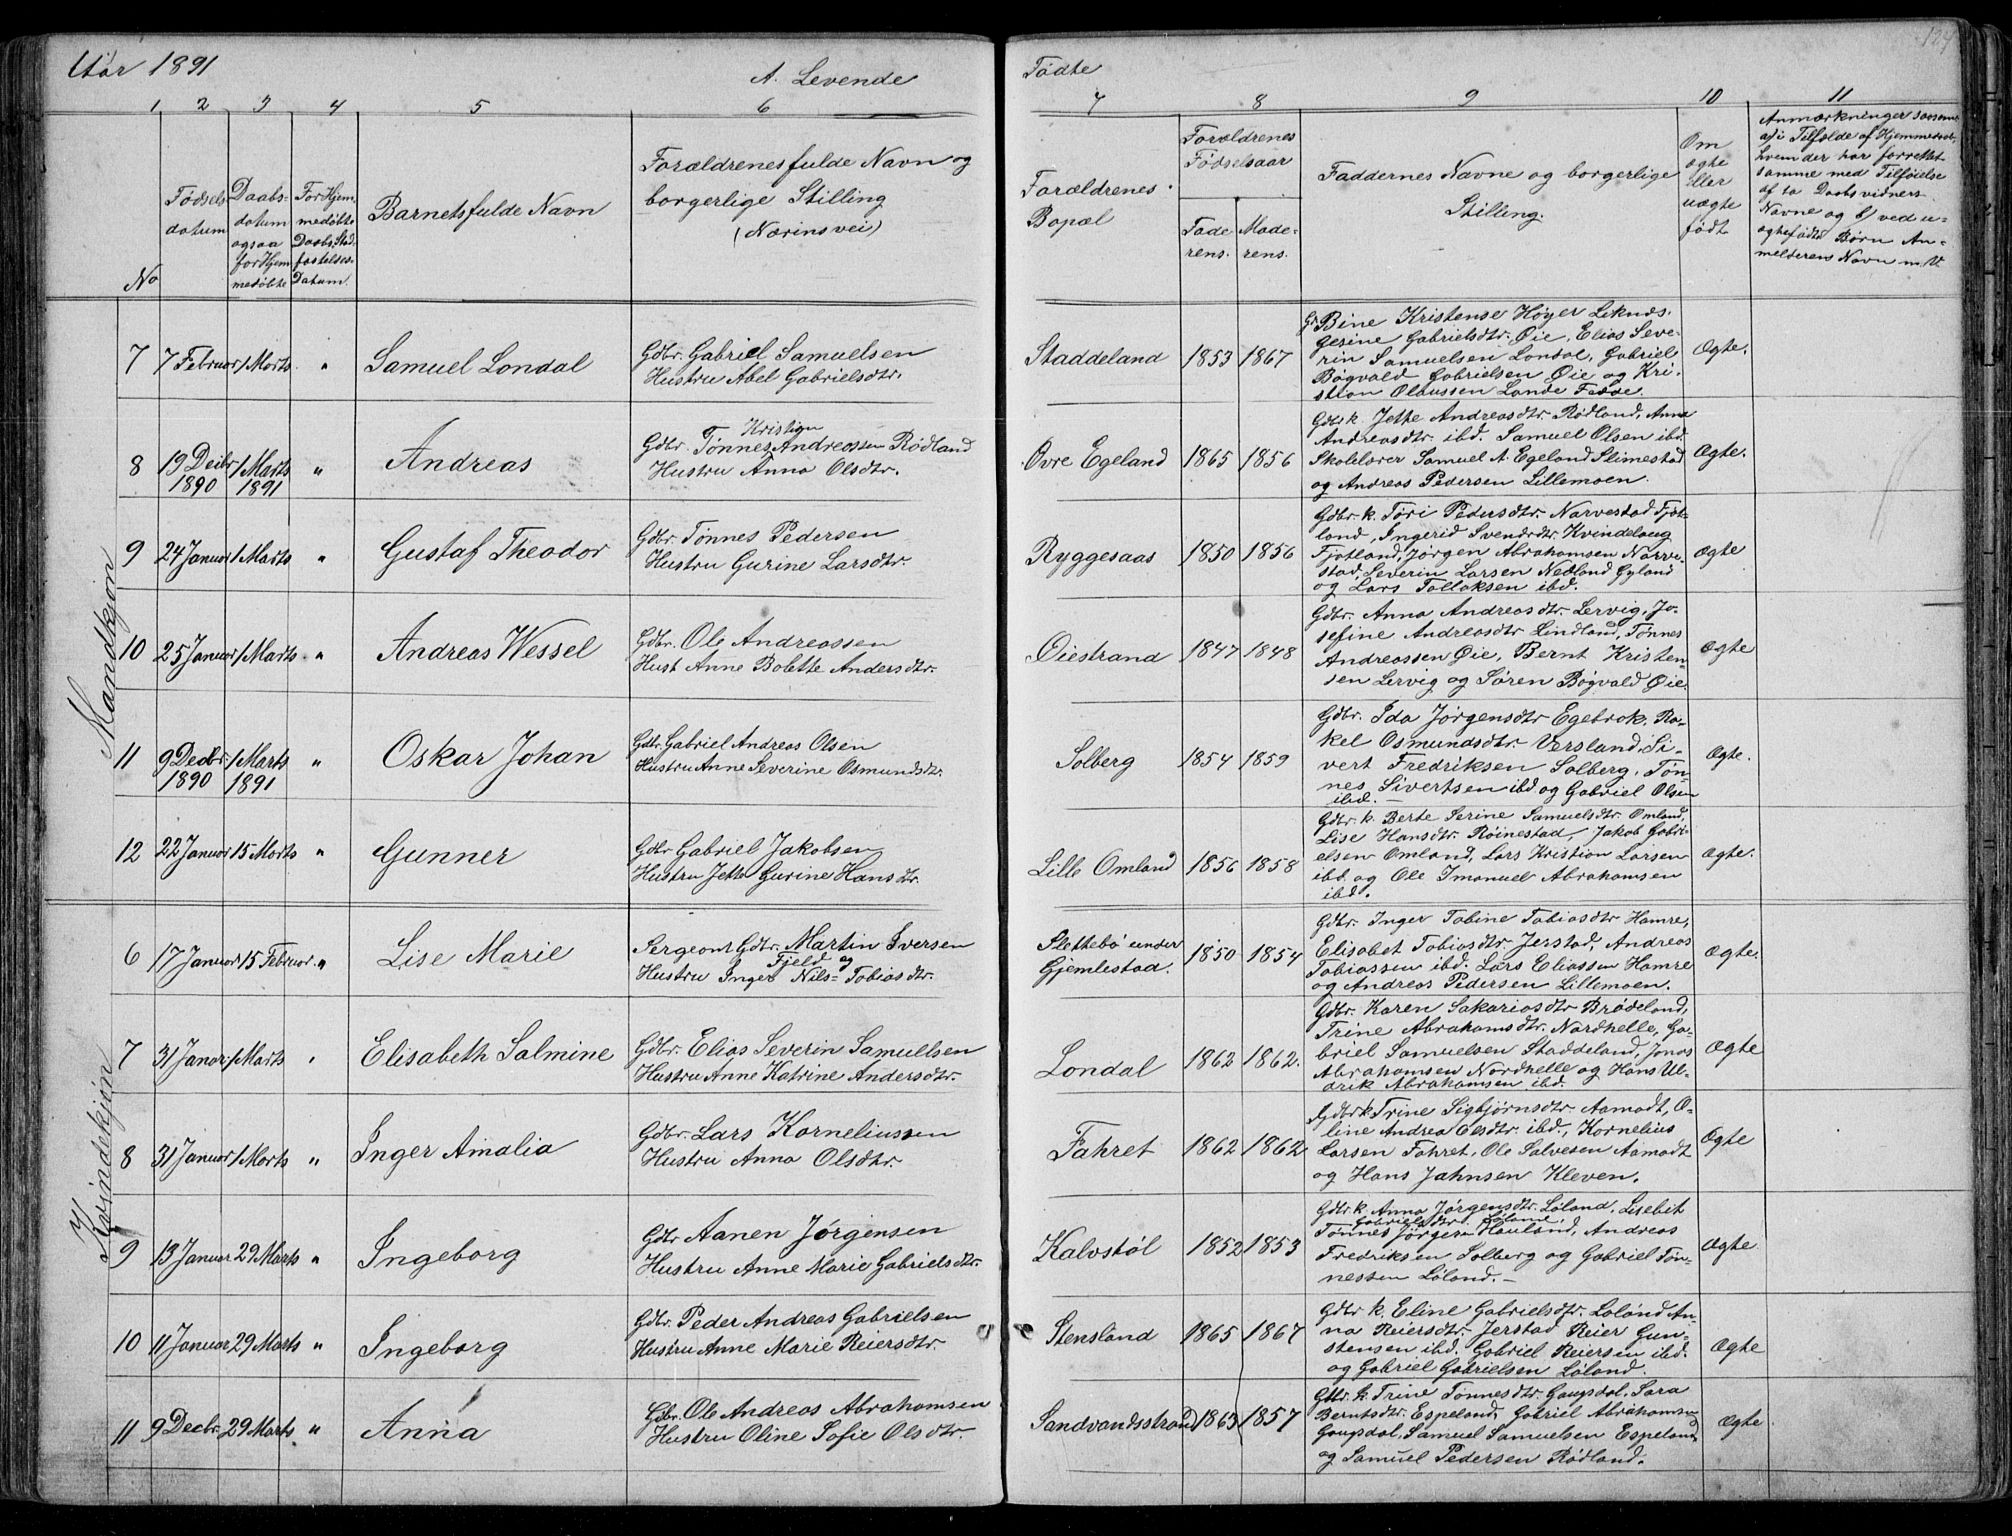 Aar 1891
A. Levende
Fødte
124
1 2 3 4 5 6
7 8 9 10 11
No
Fødsels
datum
Daabs-
datum
ogsaa
for Hjem
medøbte
For Hjem
medøbte
Daabs Stad
fæstelses-
Datum.
Barnets fulde Navn
Forældrenes fulde Navn og
borgerlige Stilling
(Nærinsvei)
Forældrenes
Bopæl
Forældrenes
Fødselsaar
Fade
rens.
Mode-
rens.
Faddernes Navne og borgerlige
Stilling.
Om
ægte
eller
uægte
født
Anmærkninger saasom
a/i Tilfælde af Hjemmedaab,
hvem der har forrettet
samme med Tilføielse
af to Daabsvidners
Navne og b/ ved u-
ægtefødte Børn An-
melderens Navn m.V.
Mandkjøn
7 7 Februar 1 Marts " Samuel Londal
Gdbr. Gabriel Samuelsen
Hustru Abel Gabrielsdtr.
Staddeland 1853 1867
Gd Bine Kristense Høyer Leknes.
Gesine Gabrielsdtr. Øie, Elias Seve-
rin Samuelsen Londal, Gabriel
Bøgvald Gabrielsen Øie og Kri-
stian Olaussen Lande Fedde.
Ægte.
8 19 Decbr 1890 1 Marts 1891 " Andreas
Kristian
Gdbr. Tønnes Andreassen Rødland
Hustru Anna Olsdtr.
Øvre Egeland 1865 1856
Gdbr k. Jethe Andreasdtr. Rødland, Anna
Andreasdtr. ibd. Samuel Olsen ibd.
Skolelærer Samuel A. Egeland Slimestad
og Andreas Pedersen Lillemoen.
Ægte.
9 24 Januar 1 Marts " Gustaf Theodor
Gdbr Tønnes Pedersen
Hustru Gurine Larsdtr.
Ryggesaas 1850 1856
Gdbr. k. Tøri Pedersdtr. Narvestad Fjot-
land, Ingerid Svendsdtr. Kvindelaug
Fjotland, Jørgen Abrahamsen Narve-
stad, Severin Larsen Nedland Gyland
og Lars Tollaksen ibd.
Ægte
10 25 Januar 1 Marts " Andreas Wessel
Gdbr. Ole Andreassen
Hust Anne Bolette Andersdtr.
Øiestrand 1847 1848
Gdbr. Anna Andreasdtr. Lervig, Jo-
sefine Andreasdtr Lindland, Tønnes
Andreassen Øie, Bernt Kristen-
sen Lervig og Søren Bøgvald Øie.
Ægte
11 9 Decbr. 1890 1 Marts 1891 " Oskar Johan
Gdbr. Gabriel Andreas Olsen
Hustru Anne Severine Osmundsdtr.
Solberg 1854 1859
Gdbr. Ida Jørgensdtr Egebrok. Ra-
kel Osmundsdtr. Versland. Si-
vert Fredriksen Solberg. Tøn-
nes Sivertsen ibd og Gabriel Olsen
ibd.—
Ægte.
12 22 Januar 15 Marts " Gunner
Gdbr Gabriel Jakobsen
Hustru Jette Gurine Hansdtr.
Lille Omland 1856 1858
Gdbr. k. Berte Serine Samuelsdtr. Omland,
Lise Hansdtr. Røinestad, Jakob Gabri-
elsen Omland, Lars Kristian Larsen
ibd. og Ole Imanuel Abrahamsen
ibd.
Ægte.
Kvindekjøn
6 17 Januar 15 Februar " Lise Marie
Sergeant Gdbr. Martin Iversen
Fjeld og
Hustru Inger Nils= Tobiasdtr.
Slettebø under
Gjemlestad. 1850 1854
Gdbr. Inger Tobine Tobiasdtr Hamre,
Elisabet Tobiasdtr. Jerstad, Andreas
Tobiassen ibd. Lars Eliassen Hamre
og Andreas Pedersen Lillemoen.
Ægte.
7 31 Janar. 1 Marts " Elisabeth Salmine
Gdbr. Elias Severin Samuelsen
Hustru Anne Katrine Andersdtr.
Londal 1862 1862.
Gdbr. Karen Sakariasdtr Brødeland,
Trine Abrahamsdtr. Nordhelle, Ga-
briel Samuelsen Staddeland, Jonas
Abrahamsen Nordhelle og Hans Ul-
drik Abrahamsen ibd.
Ægte
8 31 Januar 1 Marts " Inger Amalia
Gdbr. Lars Korneliussen
Hustru Anna Olsdtr.
Fahret 1862 1862
Gdbr k Trine Sigbjørnsdtr. Aamodt, O-
line Andrea Olsdtr. ibd., Kornelius
Larsen Fahret, Ole Salvesen Aamodt
og Hans Jahnsen Kleven.
Ægte
9 13 Januar 29 Marts " Ingeborg
Gdbr Aanen Jørgensen
Hustru Anne Marie Gabrielsdtr.
Kalvstøl 1852 1853
Gdbr. k. Anna Jørgensdtr. Løland, Lisebet
Gabrielsdtr. Løland,
Tønnes Jørgesen Houland, Andreas
Fredriksen Solberg og Gabriel Tøn-
nessen Løland.—
Ægte
10 11 Januar 29 Marts " Ingeborg
Gdbr. Peder Andreas Gabrielsen
Hustru Anne Marie Reiersdtr.
Stensland 1865 1867
Gdbr k. Eline Gabrielsdtr. Løland An-
na Reiersdtr. Jerstad Reier Gun-
stensen ibd. Gabriel Reiersen ibd.
og Gabriel Gabrielsen Løland.
Ægte
11 9 Decbr. 29 Marts " Anna
Gdbr. Ole Andreas Abrahamsen
Hustru Oline Sofie Olsdtr.
Sandvandsstrand 1863 1857
Gdbr. k. Trine Tønnesdtr. Gaupdal, Sara
Berntsdtr. Espeland, Gabriel Abrahamsen
Gaupdal, Samuel Samuelsen Espeland
og Samuel Pedersen Rødland.
Ægte